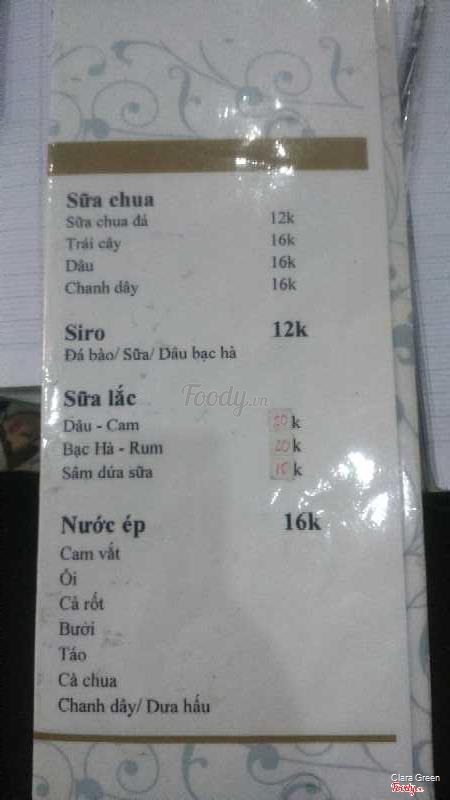 Sữa chua
Sữa chua đá 12k
Trái cây 16k
Dâu 16k
Chanh dây 16k
Siro 12k
Đá bào/ Sữa/ Dâu bạc hà
Foody.vn
Sữa lắc
Dâu - Cam 20 k
Bạc Hà - Rum 20 k
Sâm dứa sữa 15 k
Nước ép 16k
Cam vắt
Ổi
Cà rốt
Bưởi
Táo
Cà chua
Chanh dây/ Dưa hấu
Clara Green
Foody.vn